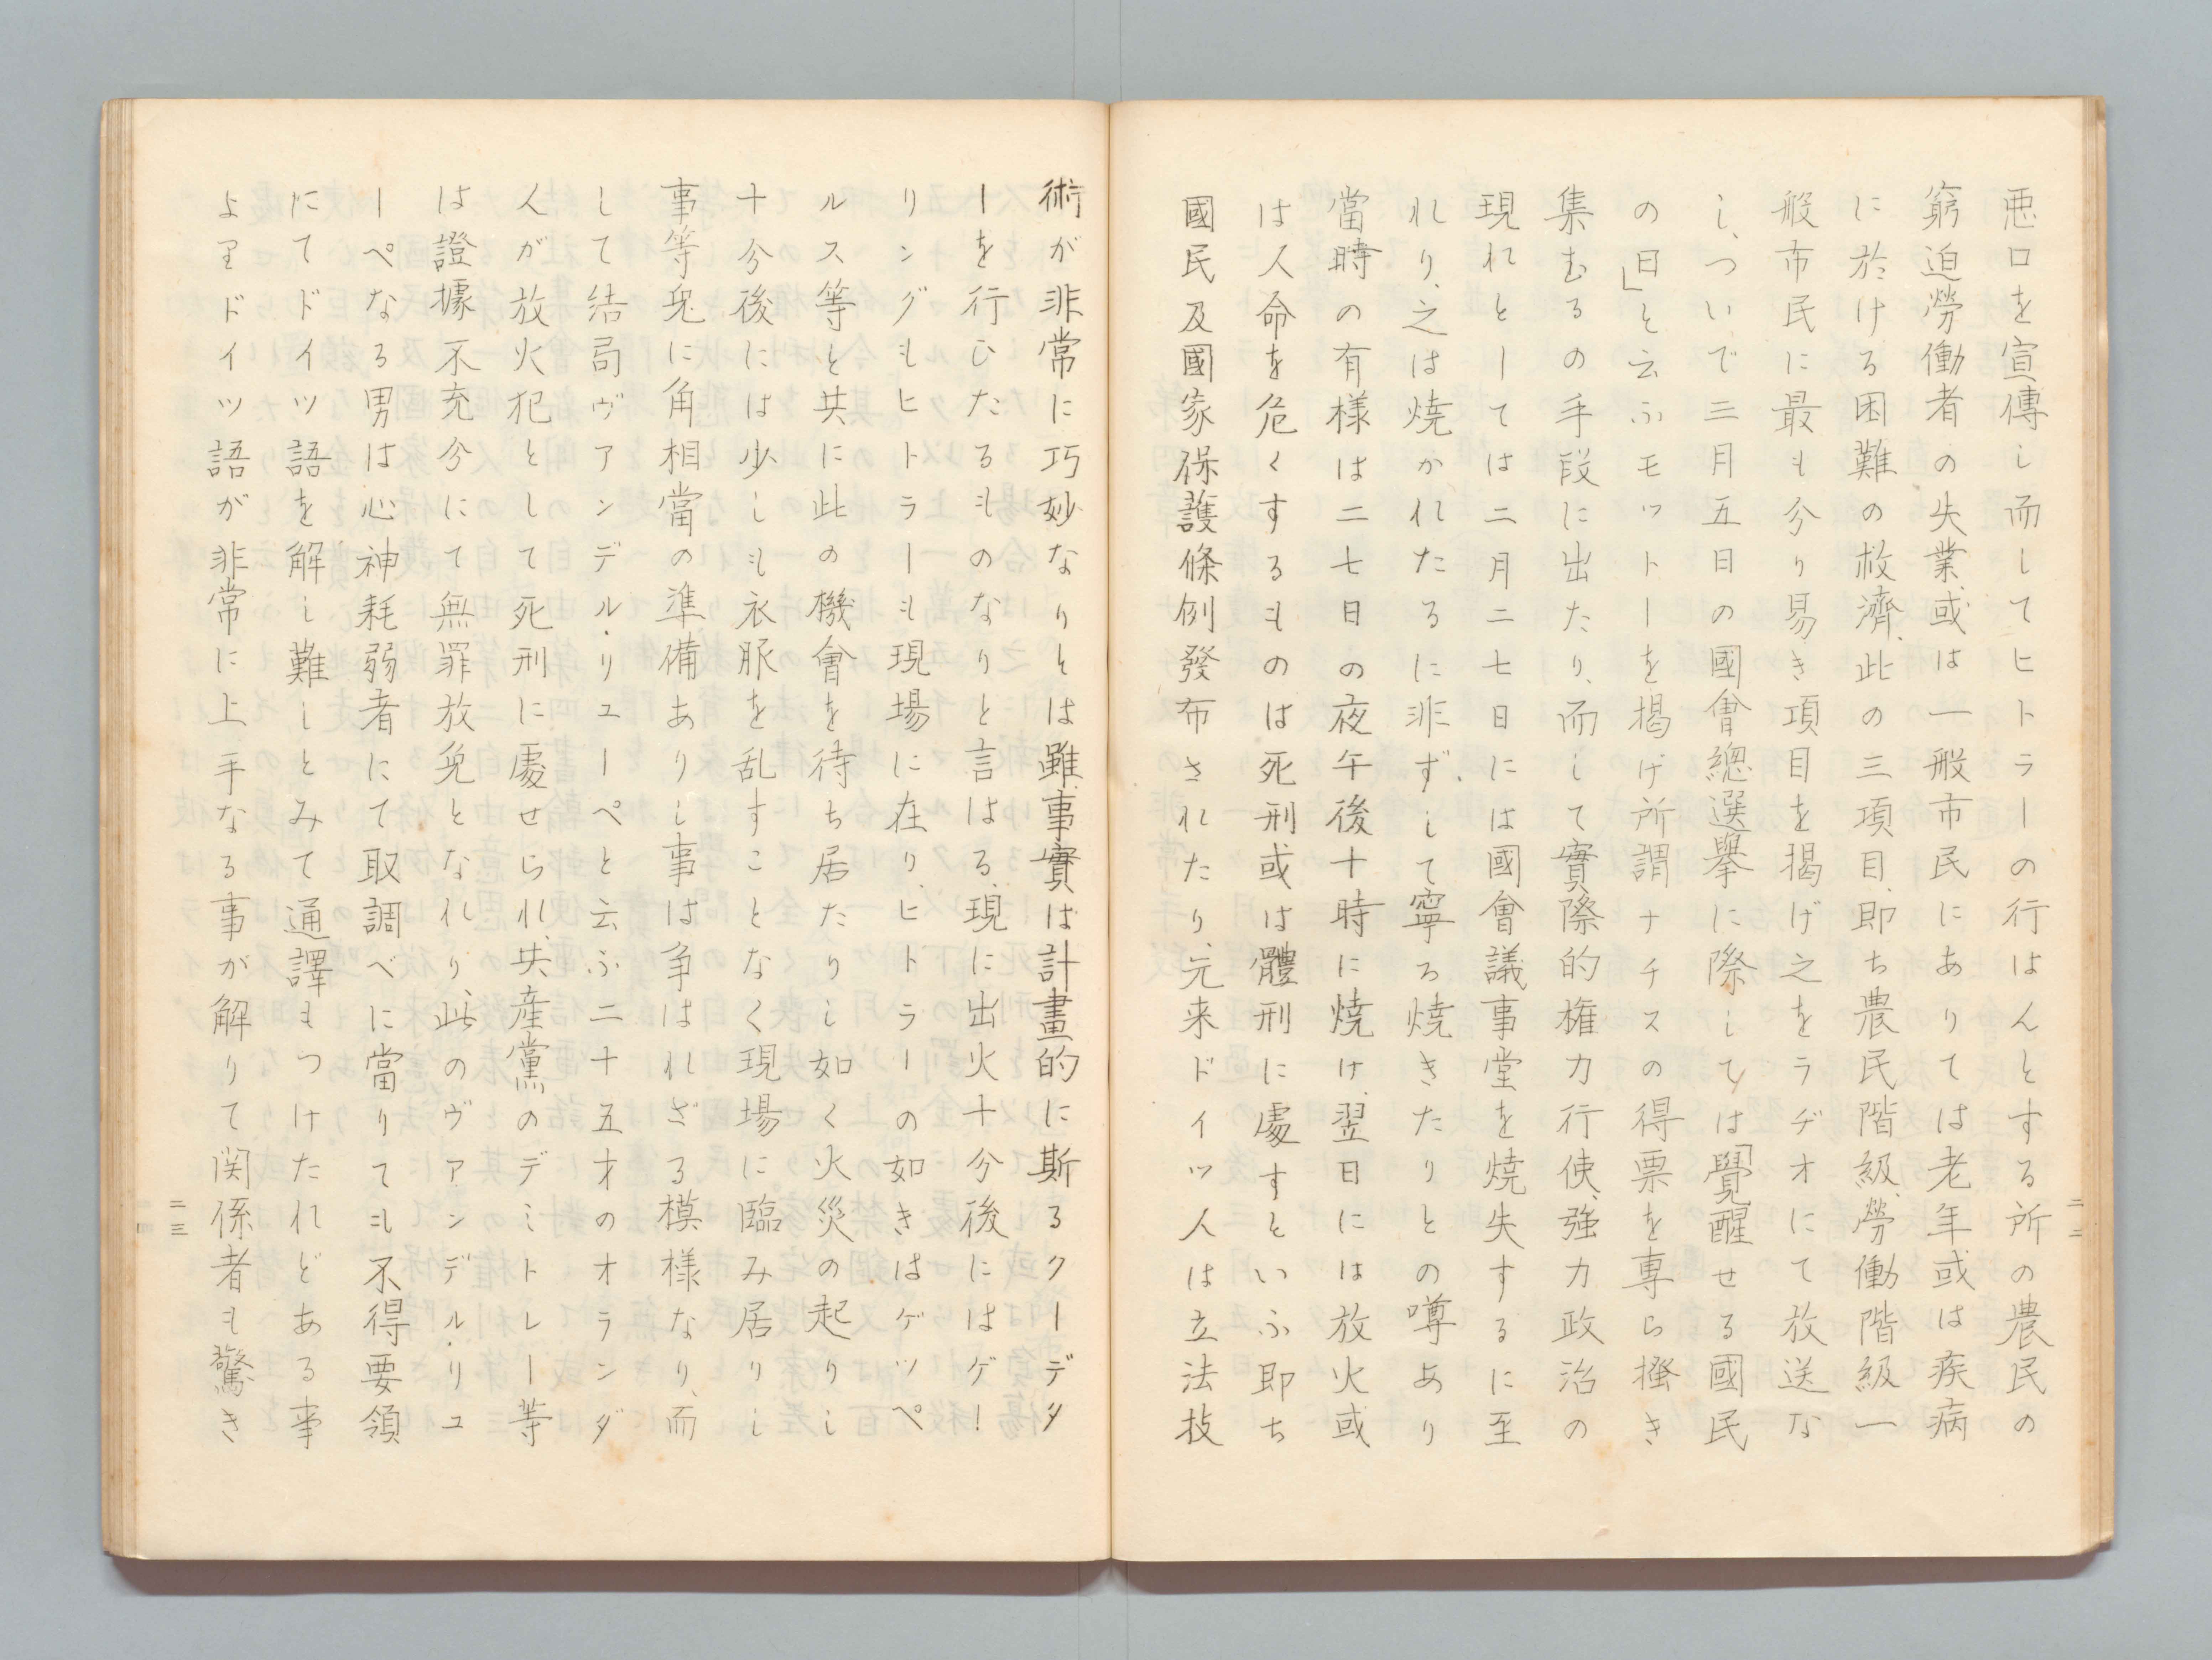 悪口を宣傳し而してヒトラーの行はんとする所の農民の
窮迫、勞働者の失業、或は一般市民にありては老年或は疾病
に於ける困難の救濟、此の三項目、即ち農民階級、勞働階級一
般市民に最も分り易き項目を揭げ之をラヂオにて放送な
し、ついで三月五日の國會總選擧に際しては「覺醒せる國民
の日」と云ふモットーを揭げ所謂ナチスの得票を専ら搔き
集むるの手段に出たり、而して實際的権力行使、強力政治の
現れとしては二月二七日には國會議事堂を焼失するに至
れり、之は焼かれたるに非ずして寧ろ焼きたりとの噂あり
當時の有樣は二七日の夜午後十時に焼け、翌日には放火或
は人命を危くするものは死刑或は體刑に處すといふ即ち
國民及國家保護條例發布されたり、元来ドイツ人は立法技
二二
術が非常に巧妙なりとは雖、事實は計畫的に斯るクーデタ
ーを行ひたるものなりと言はる、現に出火十分後にはゲー
リングもヒトラーも現場に在り、ヒトラーの如きはゲッペ
ルス等と共に此の機會を待ち居たりし如く火災の起りし
十分後には少しも衣服を乱すことなく現場に臨み居りし
事等兎に角相當の準備ありし事は争はれざる模樣なり、而
して結局ヴアンデル・リューペと云ふ二十五才のオランダ
人が放火犯として死刑に處せられ、共産黨のデミトレー等
は證據不充分にて無罪放免となれり、此のヴアンデル・リュ
ーペなる男は心神耗弱者にて取調べに當りても不得要領
にてドイツ語を解し難しとみて通譯もつけたれどある事
よりドイツ語が非常に上手なる事が解りて関係者も驚き
二三